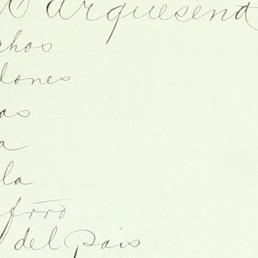 Marquesend
chos
lones
as
a
la
del país